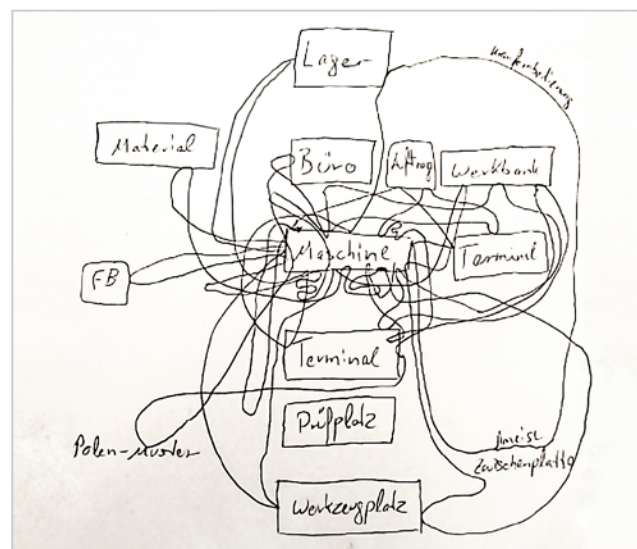 Lager
Material
Büro
Auftrag
Werkbank
Maschine
Terminal
FB
Terminal
Prüfplatz
Polen-Muster
Zwischenplatte
Werkzeugplatz